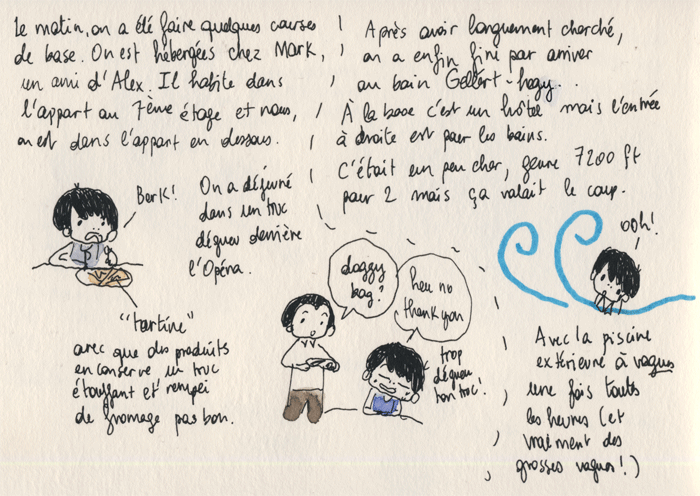 Le matin, on a été faire quelques courses
de base. On est hébergées chez Mark,
un ami d'Alex. Il habite dans
l'appart au 7ème étage et nous,
on est dans l'appart en dessous.
Berk!
On a déjeuné
dans un truc
dégueu derrière
l'Opéra.
"tartine"
avec que des produits
en conserve un truc
étouffant et rempli
de fromage pas bon.
doggy
bag?
heu no
thank you
trop
dégueu
ton truc!
Après avoir longuement cherché,
on a enfin fini par arriver
au bain Géllért-hegy...
À la base c'est un hôtel mais l'entrée
à droite est pour les bains.
C'était un peu cher, genre 7200 ft
pour 2 mais ça valait le coup.
ooh!
Avec la piscine
extérieure à vagues
une fois touts
les heures (et
vraiment des
grosses vagues!)